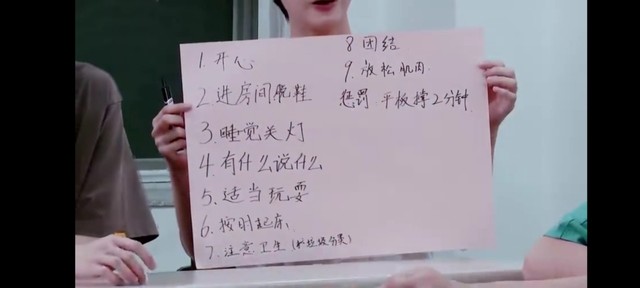 1.开心
2.进房间脱鞋
3.睡觉关灯
4.有什么说什么
5.适当玩耍
6.按时起床
7.注意卫生(垃圾分类)
8 团结
9.放松肌肉
惩罚 平板撑2分钟